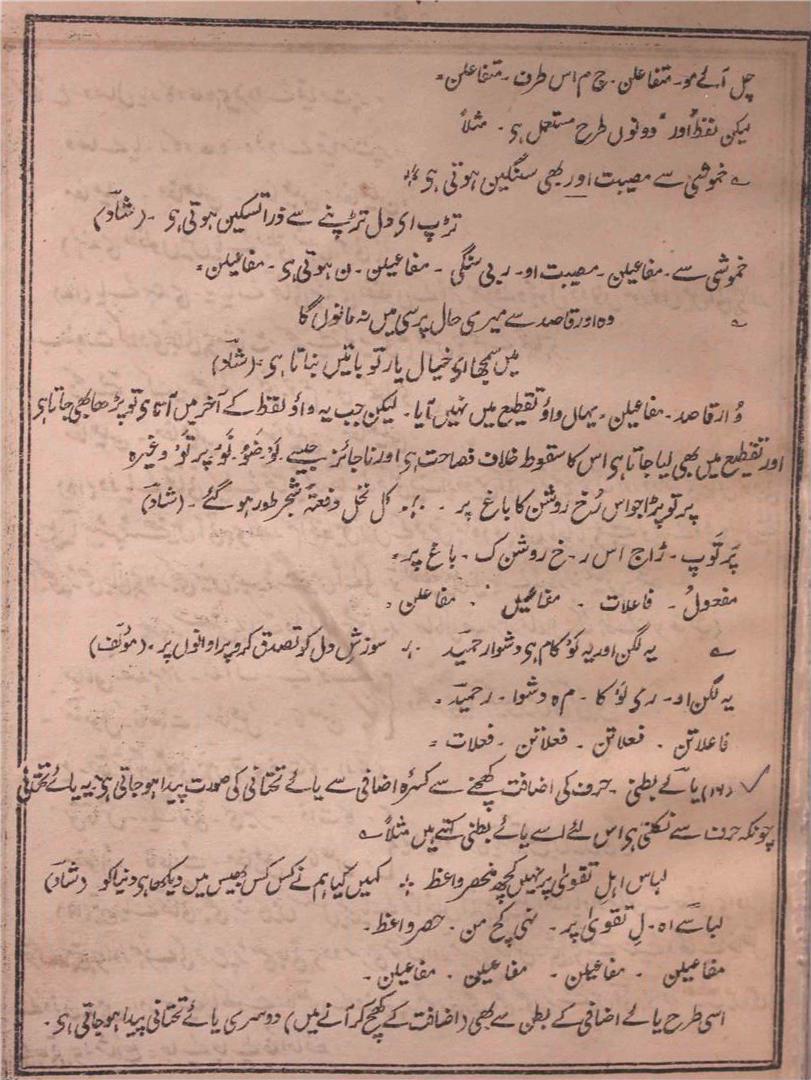 چل آئے مو۔ متفاعلن۔ چ م اس طرف۔ متفاعلن۔
لیکن لفظ اور دونوں طرح مستعمل ہی۔ مثلاً
خموشی سے مصیبت اور بھی سنگین ہوتی ہی
تڑپ ای دل تڑپنے سے ذرا تسکین ہوتی ہی۔ (شاد)
خموشی سے۔ مفاعیلن۔ مصیبت او۔ ر بی سنگی۔ مفاعیلن۔ ن ہوتی ہی۔ مفاعیلن۔
وہ اور قاصد سے میری حال پرسی میں نہ مانوں گا
میں سمجھا ای خیال یار تو باتیں بناتا ہی۔ (شاد)
وُ ار قاصد۔ مفاعیلن۔ یہاں واؤ تقطیع میں نہیں آیا۔ لیکن جب یہ واؤ لفظ کے آخر میں آتا ہی تو پڑھا بھی جاتا ہی
اور تقطیع میں بھی لیا جاتا ہی اس کا سقوط خلاف فصاحت ہی اور ناجائز جیسے لَو۔ ضَو۔ نَو۔ پرتَو وغیرہ
پرتو پڑا جو اس رُخ روشن کا باغ پر۔ کل نخل دفعتہً شجر طور ہو گئے۔ (شاد)
پَر تَوپ۔ ڑاج اس ر۔ خ روشن ک۔ باغ پر۔
مفعولُ۔ فاعلات۔ مفاعیل۔ مفاعلن۔
یہ لگن اور یہ لَو کام ہی دشوار حمید سوزشِ دل کو تصدق کرو پراوانوں پر۔ (مؤلف)
یہ لگن او۔ ر ی لَو کا۔ م ہ دشوا۔ ر حمید۔
فاعلاتن۔ فعلاتن۔ فعلاتن۔ فعلات۔
(۱۶) یائے بطنی۔ حرف کی اضافت کھچنے سے کسرۂ اضافی سے یائے تحتانی کی صورت پیدا ہو جاتی ہی۔ یہ یائے تحتانی
چونکہ حرف سے نکلتی ہی اس لئے اسے یائے بطنی کہتے ہیں مثلاً
لباس اہل تقویٰ پر نہیں کچھ منحصر واعظ کہیں کیا ہم نے کس کس بھیس میں دیکھا ہی دنیا کو (شاد)
لباسے اہ۔ لِ تقویٰ پر۔ نہی کچ من۔ حصر واعظ۔
مفاعیلن۔ مفاعیلن۔ مفاعیلن۔ مفاعیلن۔
اسی طرح یائے اضافی کے بطن سے بھی (اضافت کے کھچ کر آنے میں) دوسری یائے تحتانی پیدا ہو جاتی ہی۔